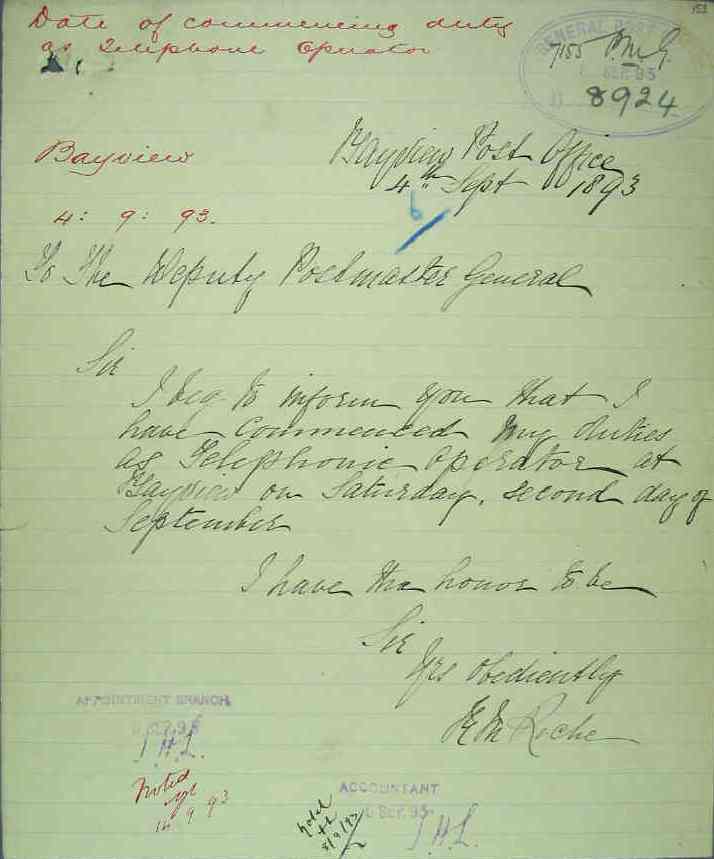 Date of commencing duty
as Telephone Operator
153
GENERAL POST
7155 P.M.G.
SEP. 93
8924
Bayview
4: 9: 93.
Bayview Post Office
4th Sept 1893
6
To The Deputy Postmaster General
Sir
I beg to inform you that I
have commenced my duties
as Telephonic Operator at
Bayview on Saturday, second day of
September
I have the honor to be
Sir
Yrs Obediently
Roche
APPOINTMENT BRANCH.
J.H.L.
Noted
14. 9 93
ACCOUNTANT
SEP. 93
J.H.L.
noted
8/9/93